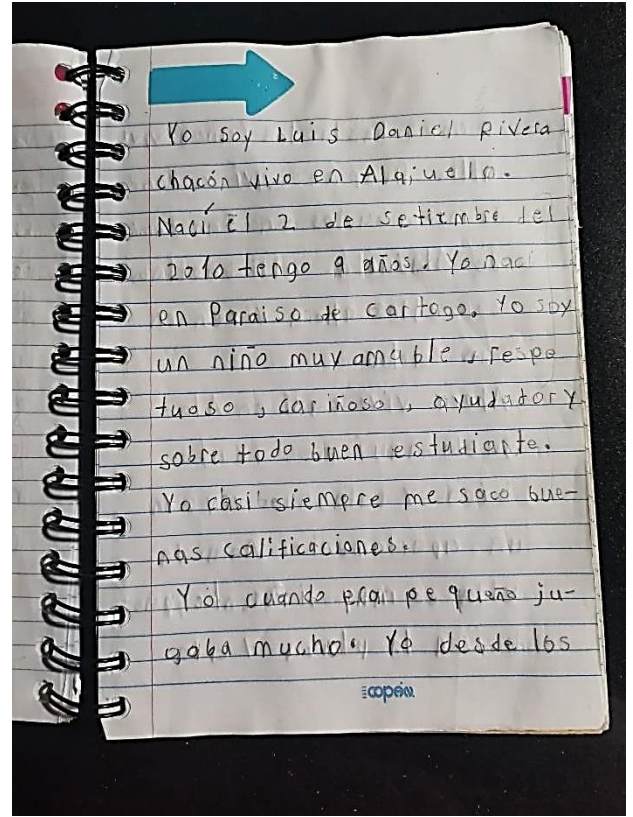 Yo soy Luis Daniel Rivera
chacón vivo en Alajuela.
Nací el 2 de setiembre del
2010 tengo 9 años. Yo naci
en Paraiso de cartago. Yo soy
un niño muy amable, respe
tuoso, cariñoso, ayudador y
sobre todo buen estudiante.
Yo casi siempre me saco bue-
nas calificaciones.
Yo cuando era pequeño ju-
gaba mucho. Yo desde los
copéin